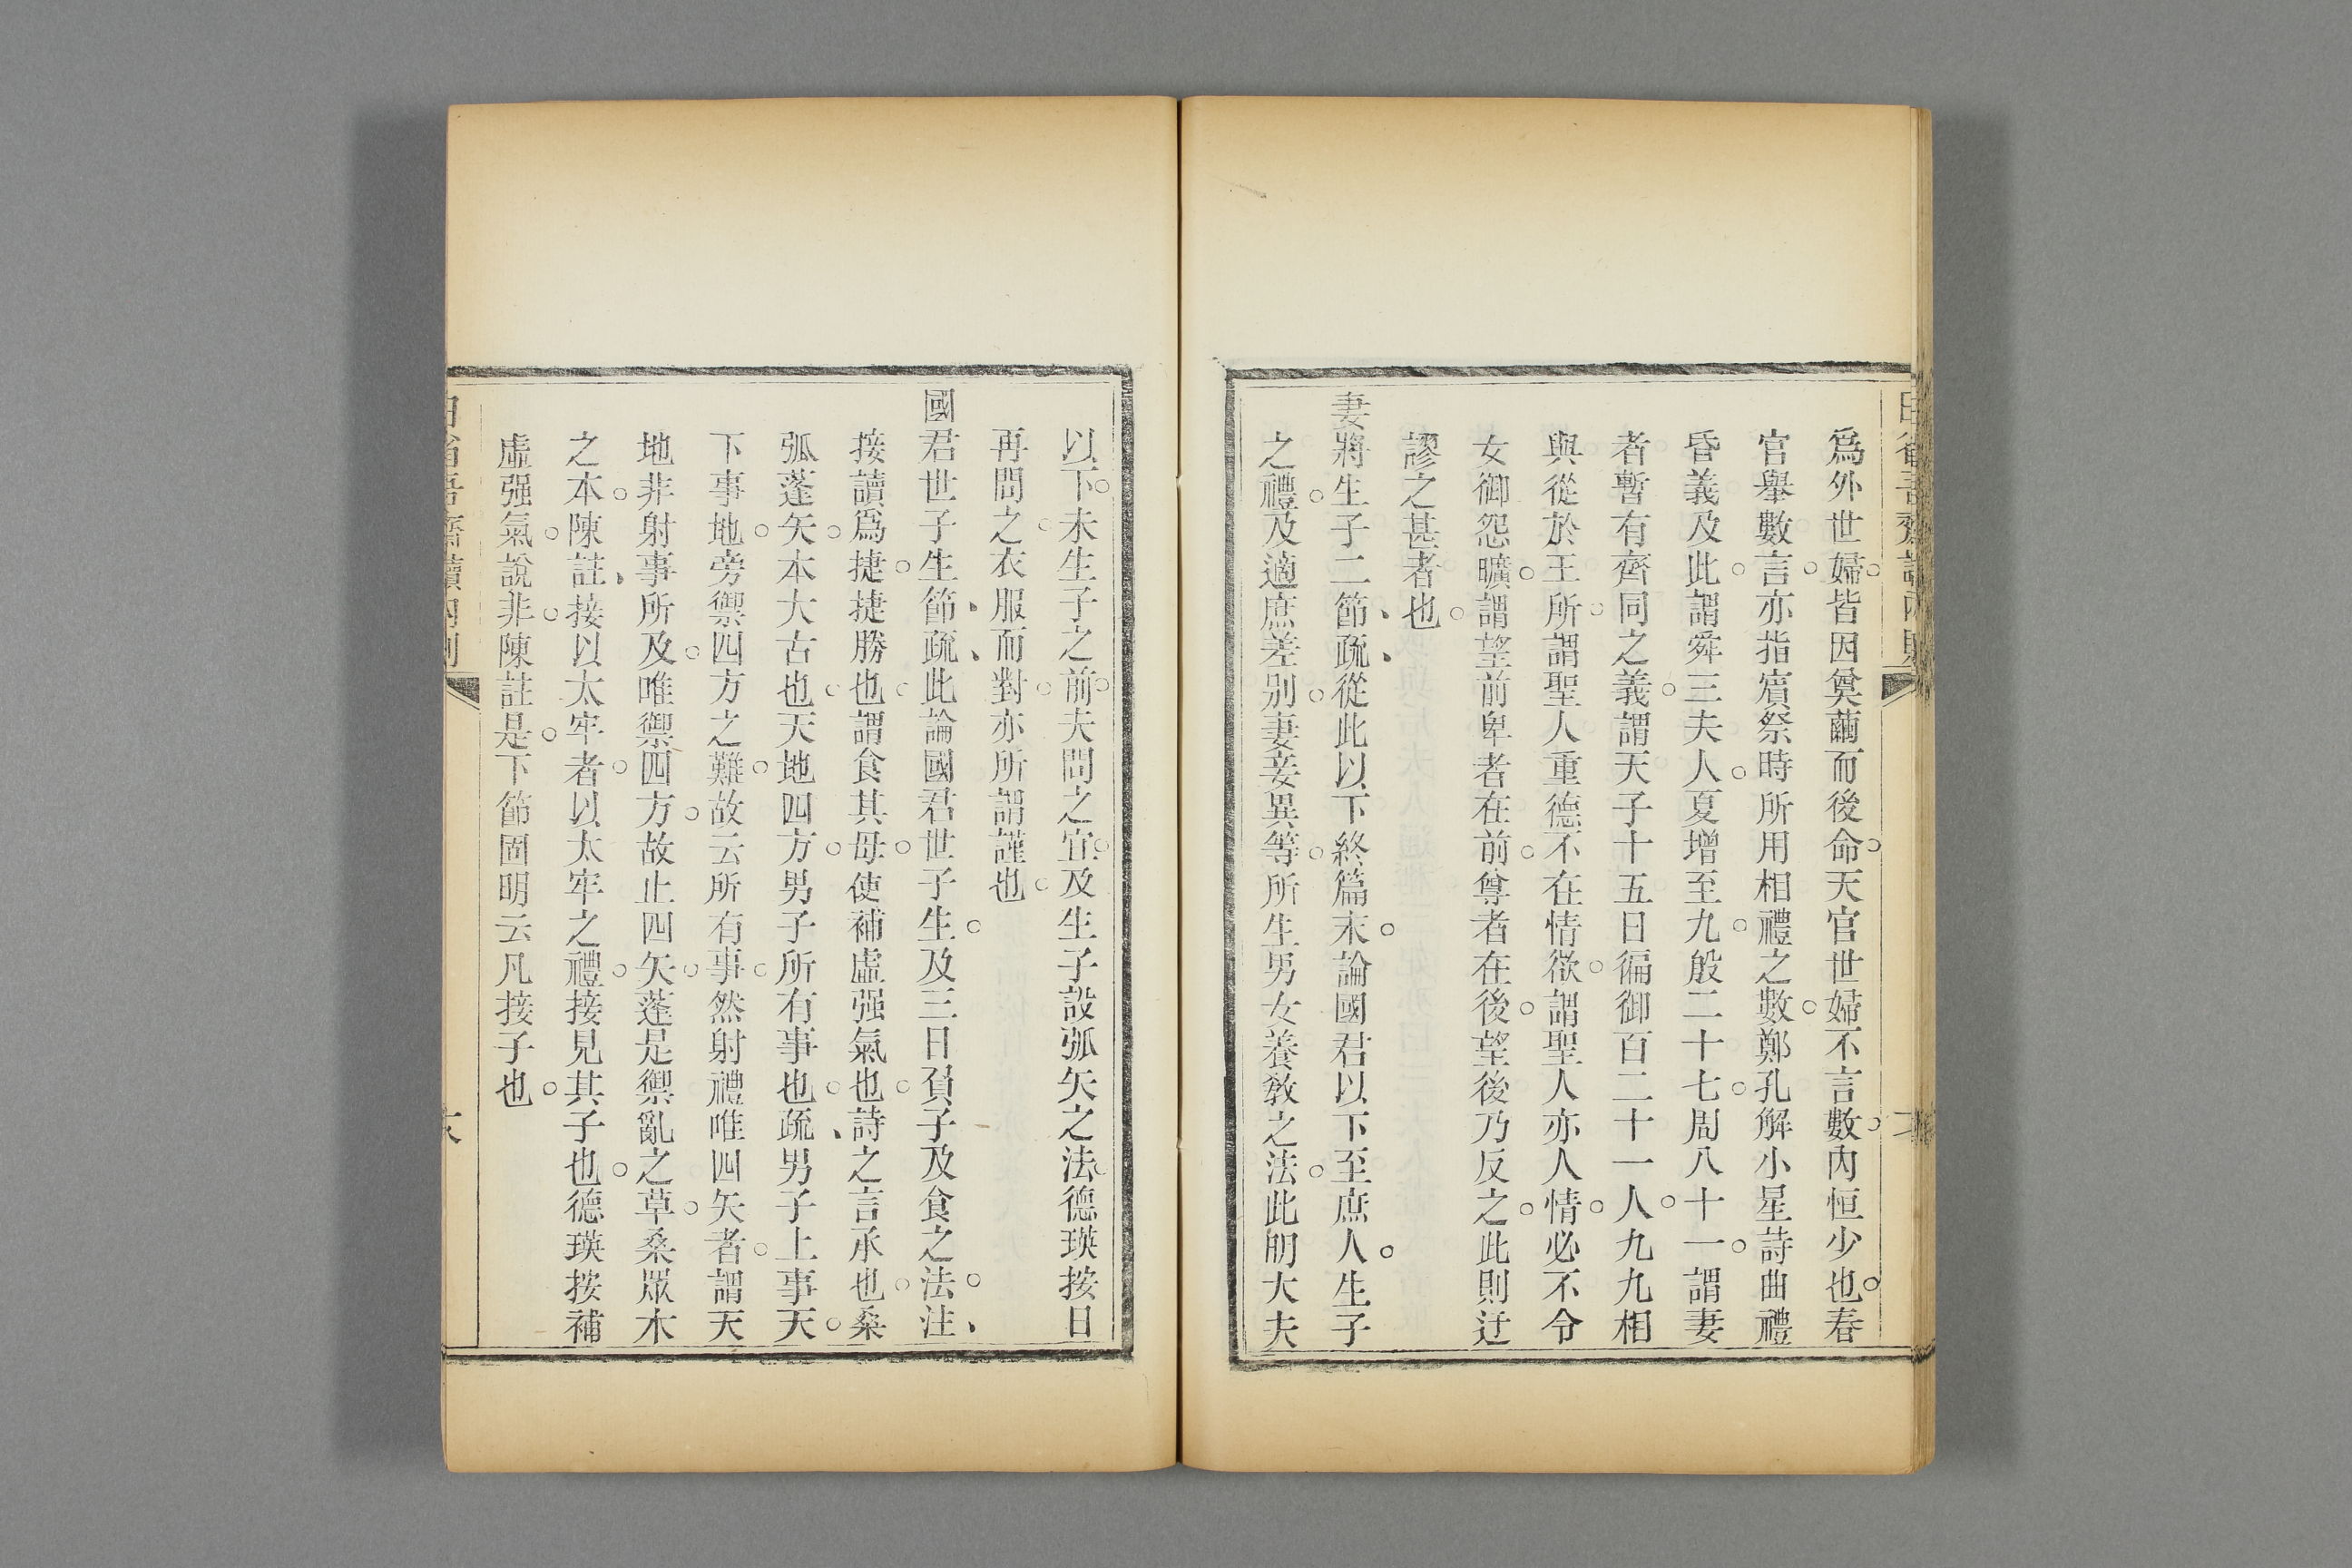 爲外世婦皆因奠繭而後命天官世婦不言數內恒少也春
官舉數言亦指賓祭時所用相禮之數鄭孔解小星詩曲禮
昏義及此謂舜三夫人夏增至九殷二十七周八十一謂妻
者暫有齊同之義謂天子十五日徧御百二十一人九九相
與從於王所謂聖人重德不在情欲謂聖人亦人情必不令
女御怨曠謂望前卑者在前尊者在後望後乃反之此則迂
謬之甚者也
妻將生子二節疏從此以下終篇末論國君以下至庶人生子
之禮及適庶差別妻妾異等所生男女養敎之法此明大夫
以下未生子之前夫問之宜及生子設弧矢之法德瑛按日
再問之衣服而對亦所謂謹也
國君世子生節疏此論國君世子生及三日負子及食之法注
接讀爲捷捷勝也謂食其母使補虛强氣也詩之言承也桑
弧蓬矢本大古也天地四方男子所有事也疏男子上事天
下事地旁禦四方之難故云所有事然射禮唯四矢者謂天
地非射事所及唯禦四方故止四矢蓬是禦亂之草桑眾木
之本陳註接以太牢者以太牢之禮接見其子也德瑛按補
虛强氣說非陳註是下節固明云凡接子也